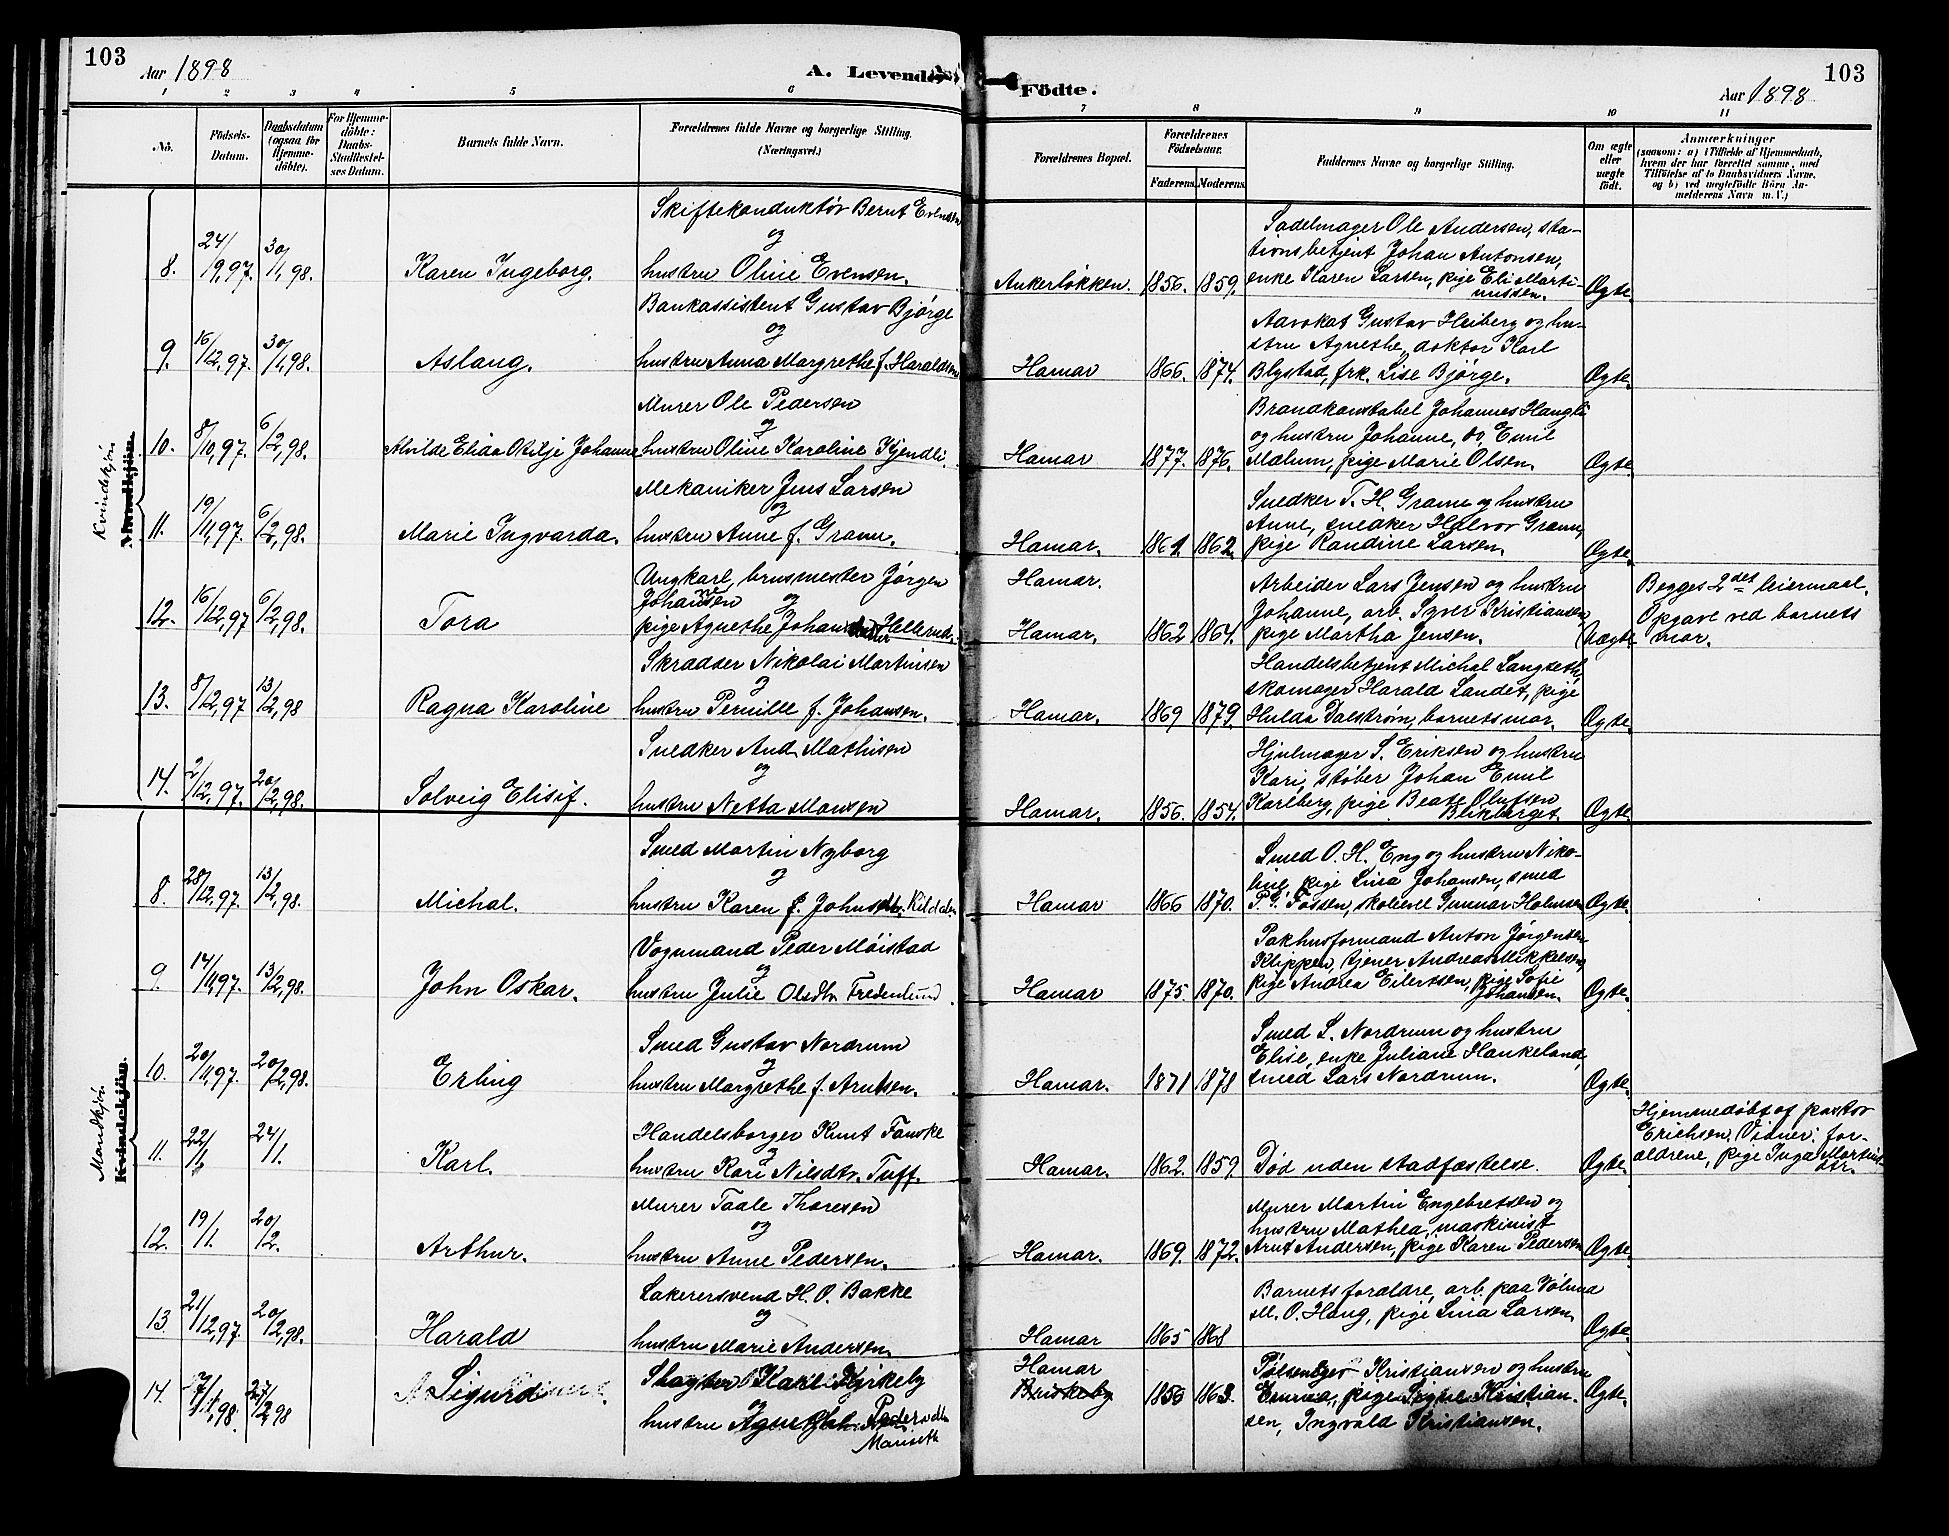 103
Aar 1898
A. Levende
Fødte.
Aar 1898
103
1 2 3 4 5 6 7 8 9 10 11
No.
Födsels-
Datum.
Daabsdatum
(ogsaa for
Hjemme-
döbte).
For Hjemme-
döbte:
Daabs-
Stadfæstel-
ses Datum.
Barnets fulde Navn.
Forældrenes fulde Navne og borgerlige Stilling.
(Næringsvei.)
Forældrenes Bopæl.
Forældrenes
Födselsaar.
Faderens. Moderens.
Faddernes Navne og borgerlig Stilling.
Om ægte
eller
uægte
født.
Anmærkninger
(saasom: a) i Tilfælde af Hjemmedaab,
hvem der har forrettet samme, med
Tilföielse af to Daabsvidners Navne,
og b) ved uægtefödte Börn An-
melderens Navn m. V.)
Kvindekjön.
Mandkjön.
8. 24/9,97. 30/1,98. Karen Ingeborg.
Skiftekonduktør Bernt Evensen
og
hustru Oline Evensen.
Ankerløkken. 1856. 1859.
Sadelmager Ole Andersen, sta-
tionsbetjent Johan Antonsen,
enke Karen Larsen, pige Eli Marti-
nussen. Ægte
9. 16/12,97. 30/1,98. Aslaug.
Bankassistent Gustav Bjørge
og
hustru Anna Margrethe f. Haraldsen
Hamar 1866. 1874.
Advokat Gustav Heiberg og hu-
stru Agnethe, doktor Karl
Blystad, frk. Lise Bjørge. Ægte.
10. 8/10,97. 6/2,98. Alvilde Elida Otilje Johanne
Murer Ole Pedersen
og
hustru Oline Karoline Kjendli.
Hamar 1877. 1876.
Brandkonstabel Johannes Haugli
og hustru Johanne, do. Emil
Malum, pige Marie Olsen. Ægte
11. 19/11,97. 6/2,98. Marie Ingvarda.
Mekaniker Jens Larsen
og
hustru Anne f. Gram.
Hamar. 1861. 1862.
Snedker T. H. Gram og hustru
Anne, snedker Halvor Gram,
pige Randine Larsen. Ægte
12. 16/12,97 6/2,98. Tora
Ungkarl, brusmester Jørgen
Johannesen
og
pige Agnethe Johansdatter Hellerud.
Hamar.
Hamar. 1862 1864.
Arbeider Lars Jensen og hustru
Johanne, arb. Syver Kristiansen,
pige Martha Jensen. Uægte
Begges 2det leiermaal.
Opgave ved barnets
mor.
13. 8/12,97 13/2,98 Ragna Karoline
Skrædder Nikolai Martinsen
og
hustru Pernille f. Johansen.
Hamar. 1869 1879.
Handelsbetjent Michal Langseth,
skomager Harald Landet, pige
Hulda Dalstrøm, barnets mor. Ægte
14. 2/12,97. 20/2,98. Solveig Elisif.
Snedker And. Mathisen
og
hustru Netta Monsen
Hamar. 1856. 1854.
Hjulmager S. Eriksen og hustru
Kari, støber Johan Emil
Karlberg, pige Beate Olufsen
Blikberget. Ægte.
Mandkjön.
Kvindekjön.
8. 28/12,97. 13/2,98. Michal.
Smed Martin Nyborg
og
hustru Karen f. Johnsdtr. Kildalen
Hamar 1866 1870.
Smed O. H. Eng og hustru Niko-
line, pige Lina Johansen, smed
P. G. Fossen, skoleelev Gunnar Holmsen Ægte.
9. 14/11,97. 13/2,98. John Oskar.
Vognmand Peder Møistad
og
hustru Julie Olsdtr. Fredenlund.
Hamar 1875 1870.
Pakhusformand Anton Jørgensen
Klippen, tjener Andreas Mikkelsen,
pige Andrea Eilertsen, pige Sofie
Johansen. Ægte.
10. 20/11,97. 20/2,98. Erling
Smed Gustav Nordrum
og
hustru Margrethe f. Arntsen.
Hamar. 1871 1878
Smed L. Nordrum og hustru
Elise, enke Juliane Haukeland,
smed Lars Nordrum. Ægte.
11. 22/1 24/1. Karl.
Handelsborger Knut Fauske
og
hustru Kari Nilsdtr. Tuff.
Hamar. 1862. 1859.
Død uden stadfæstelse. Ægte.
Hjemmedøbt af pastor
Erichsen. Vidner: for-
ældrene, pige Inga Martins-
dtr.
12. 19/1. 20/2. Arthur.
Murer Taale Thoresen
og
hustru Anne Pedersen.
Hamar. 1869. 1872.
Murer Martin Engebretsen og
hustru Mathea, maskinist
Arnt Andersen, pige Karen Pedersen Ægte.
13. 21/12,97. 20/2,98. Harald
Lakerersvend H. O. Bakke
og
hustru Marie Andersen.
Hamar 1865 1868
Barnets forældre, arb. paa Vølund
M. O. Haug, pige Lina Larsen. Ægte.
14. 7/1,98. 27/2 98 Sigurd
Slagter Karl Kirkeby
og
hustru Agnethe Pedersdtr.
Mariseth
Hamar
Briskeby 1850 1863.
Pølsemager Kristiansen og hustru
Emma, pige Signe Kristian-
sen, Ingvald Kristiansen. Ægte.